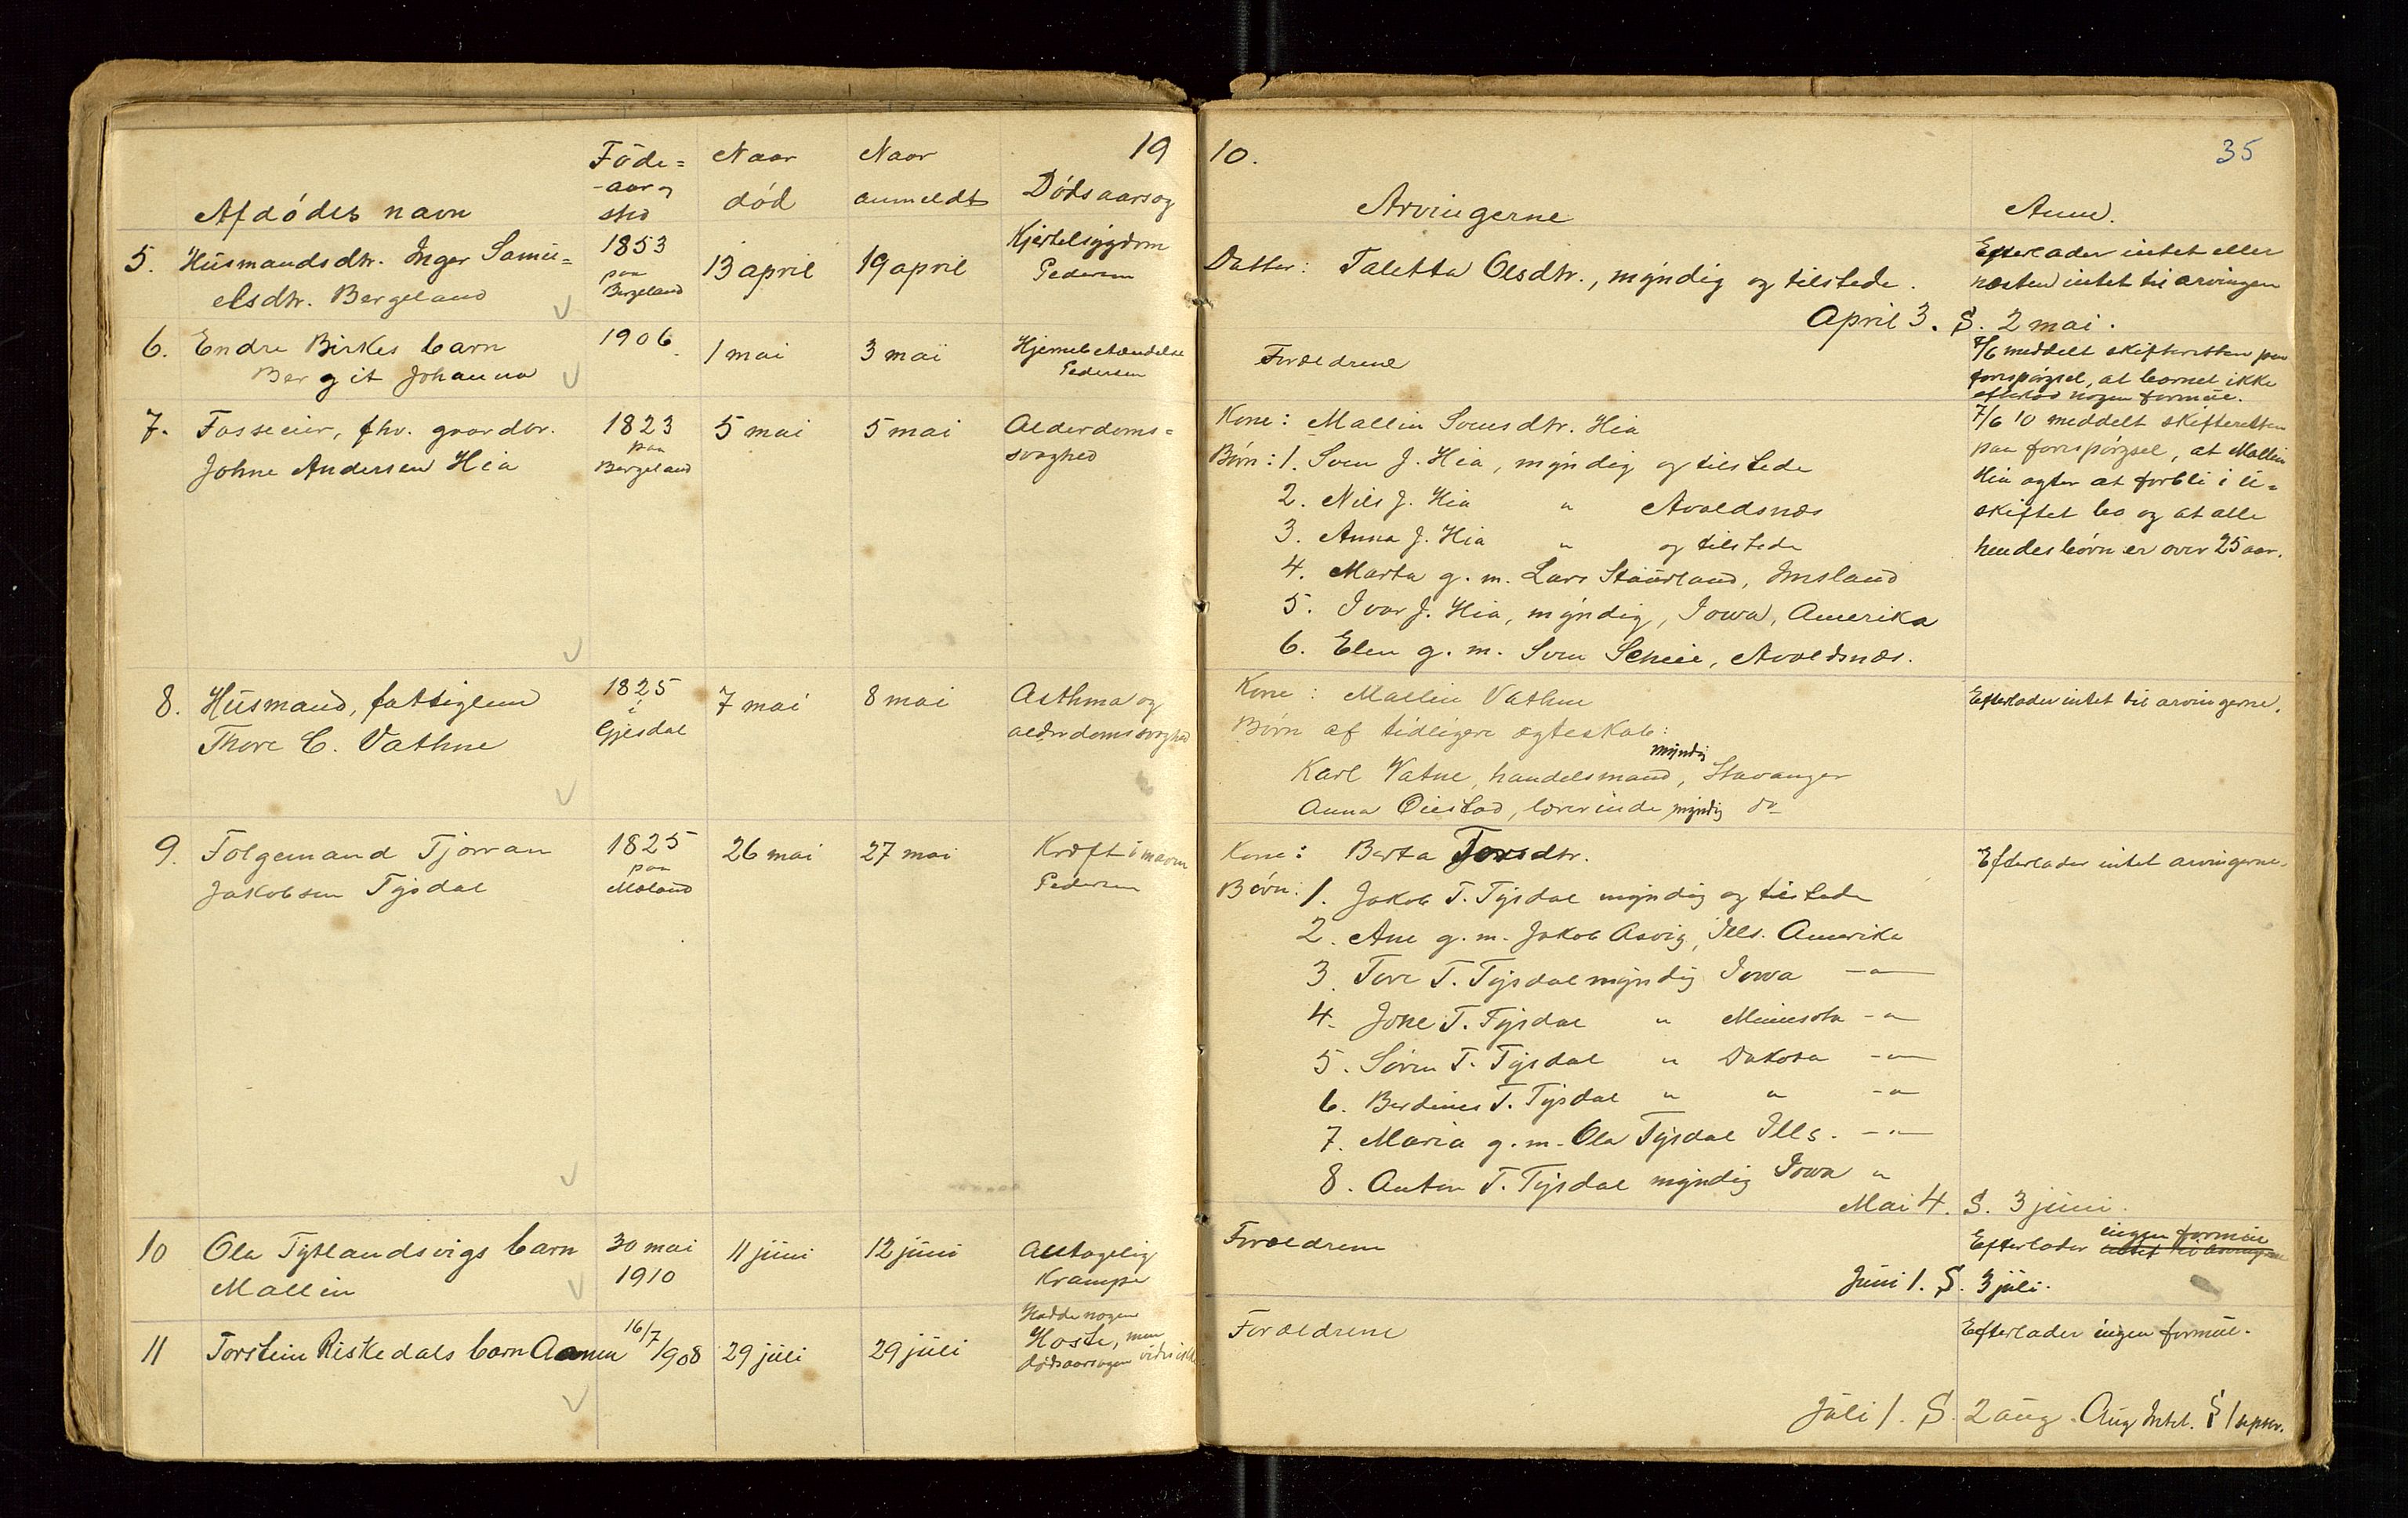 19 10. 35
Föde= Naar Naar
-aar og
Afdödes navn sted död anmeldt Dödsaarsag Arvingerne Anm.
5. Husmandsdtr. Inger Samu= 1853 13 april 19 april Kjertelsygdom
elsdtr. Bergeland paa Bergeland Pedersen
Datter: Taletta Olsdtr., myndig og tilstede. Efterlader intet eller
næsten intet til arvingen
April 3. S. 2 mai.
6. Endre Birkes barn 1906 1 mai 3 mai Hjernebetændelse
Bergit Johanna Pedersen
Forældrene 7/6 meddelt skifteretten paa
forespörgsel, at barnet ikke
efterlod nogen formue.
7. Fosseier, fhv. gaardbr. 1823 5 mai 5 mai Alderdoms=
Johne Andersen Hia paa Bergeland svaghed
Kone: Mallin Svensdtr. Hia 7/6 10 meddelt skifteretten
Börn: 1. Sven J. Hia, myndig og tilstede paa forespörgsel, at Mallin
2. Nils J. Hia " Avaldsnæs Hia agter at forbli i u=
3. Anna J. Hia " og tilstede skiftet bo og at alle
4. Marta g. m. Lars Staurland, Imsland hendes börn er over 25 aar.
5. Ivar J. Hia, myndig, Iowa, Amerika
6. Elen g. m. Sven Scheie, Avaldsnæs.
8. Husmand, fattiglem 1825 7 mai 8 mai Asthma og
Thore C. Vathne i Gjesdal alderdomssvaghed
Kone: Mallin Vathne Efterlader intet til arvingerne.
Börn af tidligere ægteskab:
myndig
Karl Vatne, handelsmand, Stavanger
Anna Öiestad, lærerinde myndig do
9. Folgemand Tjörran 1825 26 mai 27 mai Kræft i maven
Jakobsen Tysdal paa Moland Pedersen
Kone: Berta Toresdtr. Efterlader intet arvingerne.
Börn: 1. Jakob T. Tysdal myndig og tilstede
2. Ane g. m. Jakob Asvig, Ills. Amerika
3. Tore T. Tysdal myndig Iowa -"-
4. Jone T. Tysdal " Minnesota -"-
5. Sören T. Tysdal " Dakota -"-
6. Berdines T. Tysdal " " -"-
7. Maria g. m. Ola Tysdal Ills. -"-
8. Anton T. Tysdal myndig Iowa "
Mai 4. S. 3 juni.
10 Ola Tytlandsvigs barn 30 mai 11 juni 12 juni Antagelig
Mallin 1910 Krampe
Forældrene ingen formue
Efterlader intet til arvingerne
Juni 1. S. 3 juli.
11 Torstein Riskedals barn Aanen 16/7 1908 29 juli 29 juli Hadde nogen
Hoste, men
dödsaarsagen vides ikke
Forældrene Efterlader ingen formue.
Juli 1. S. 2 aug. Aug Intet. S 1 septbr.